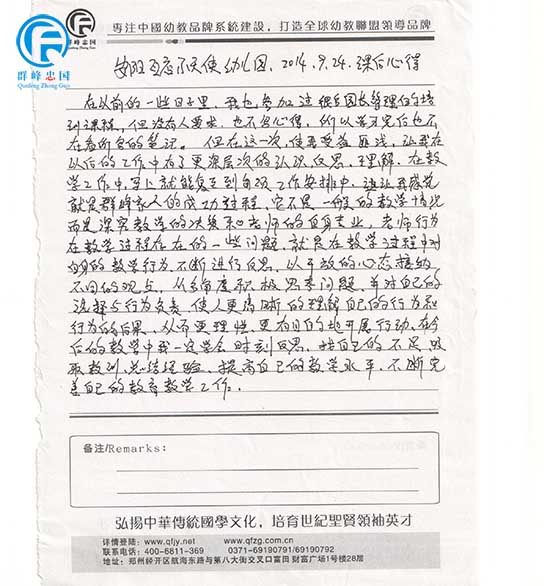 群峰忠国
Qunfeng Zhong Guo
專注中國幼教品牌系統建設，打造全球幼教聯盟領導品牌
天使幼儿园、2014.9.24.课后心得
在以前的一些日子里，我也参加过很多园长管理的培
训课程，但没有人要求，也不写心得，所以学习完后也不
在看所写的笔记。但在这一次，使再受益匪浅，让我在
以后的工作中有了更深层次的认识、反思、理解，在教
学工作中，马上就能复到自项工作安排中，这让我感觉
就是群峰家人的成功过程，它不是一般的教学情况
而是深究教学的决策和老师的自身专业，老师行为
在教学过程存在的一些问题，就是在教学过程中对
的教学行为不断进行反思，以平教的心态接纳
不同的观点，从多角度积极思考问题，并对自己的
选择与行为负责，使人更清晰的理解自己的行为和
行为的后果，从而更理性更有目的地开展行动，在今
后的教学中我一定学会时刻反思，找自己的不足，吸
取教训，总结经验，提高自己的教学水平，不断完
善自己的教育教学工作。
备注/Remarks:
弘揚中華傳統國學文化，培育世紀聖賢領袖英才
详情登陆：www.qfjy.net www.qfzg.com.cn
联系电话：400-6811-369 0371-69190791/69190792
地址：郑州经开区航海东路与第八大街交叉口富田财富广场1号楼28层